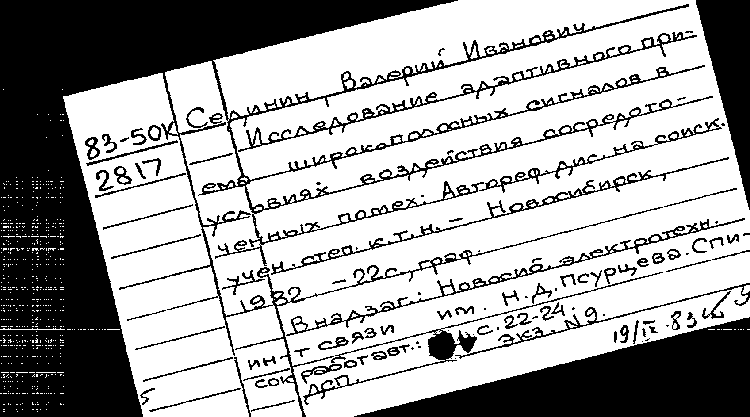 83-50К
2817
Селинин, Валерий Иванович.
Исследование адаптивного при-
ема широкополосных сигналов в
условиях воздействия сосредото-
ченных помех: Автореф. дис. на соиск.
учен. степ. к.т.н. - Новосибирск,
1982. - 22с., граф.
В надзаг.: Новосиб. электротехн.
ин-т связи им. Н.Д.Псурцева. Спи-
сок работ авт.: с. 22-24.
ДСП. Экз. N9.
19/IX.83
5